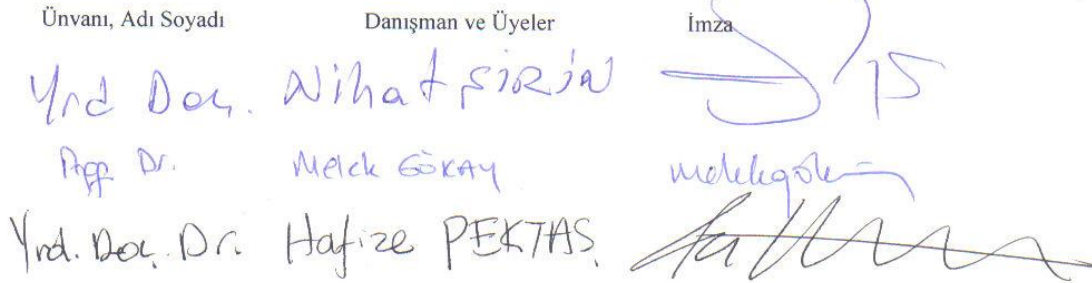 Ünvanı, Adı Soyadı Danışman ve Üyeler İmza
Yrd Doç. Nihat ŞİRİN
Prof. Dr. Melek GÖKAY melekgök
Yrd. Doç. Dr. Hafize PEKTAŞ